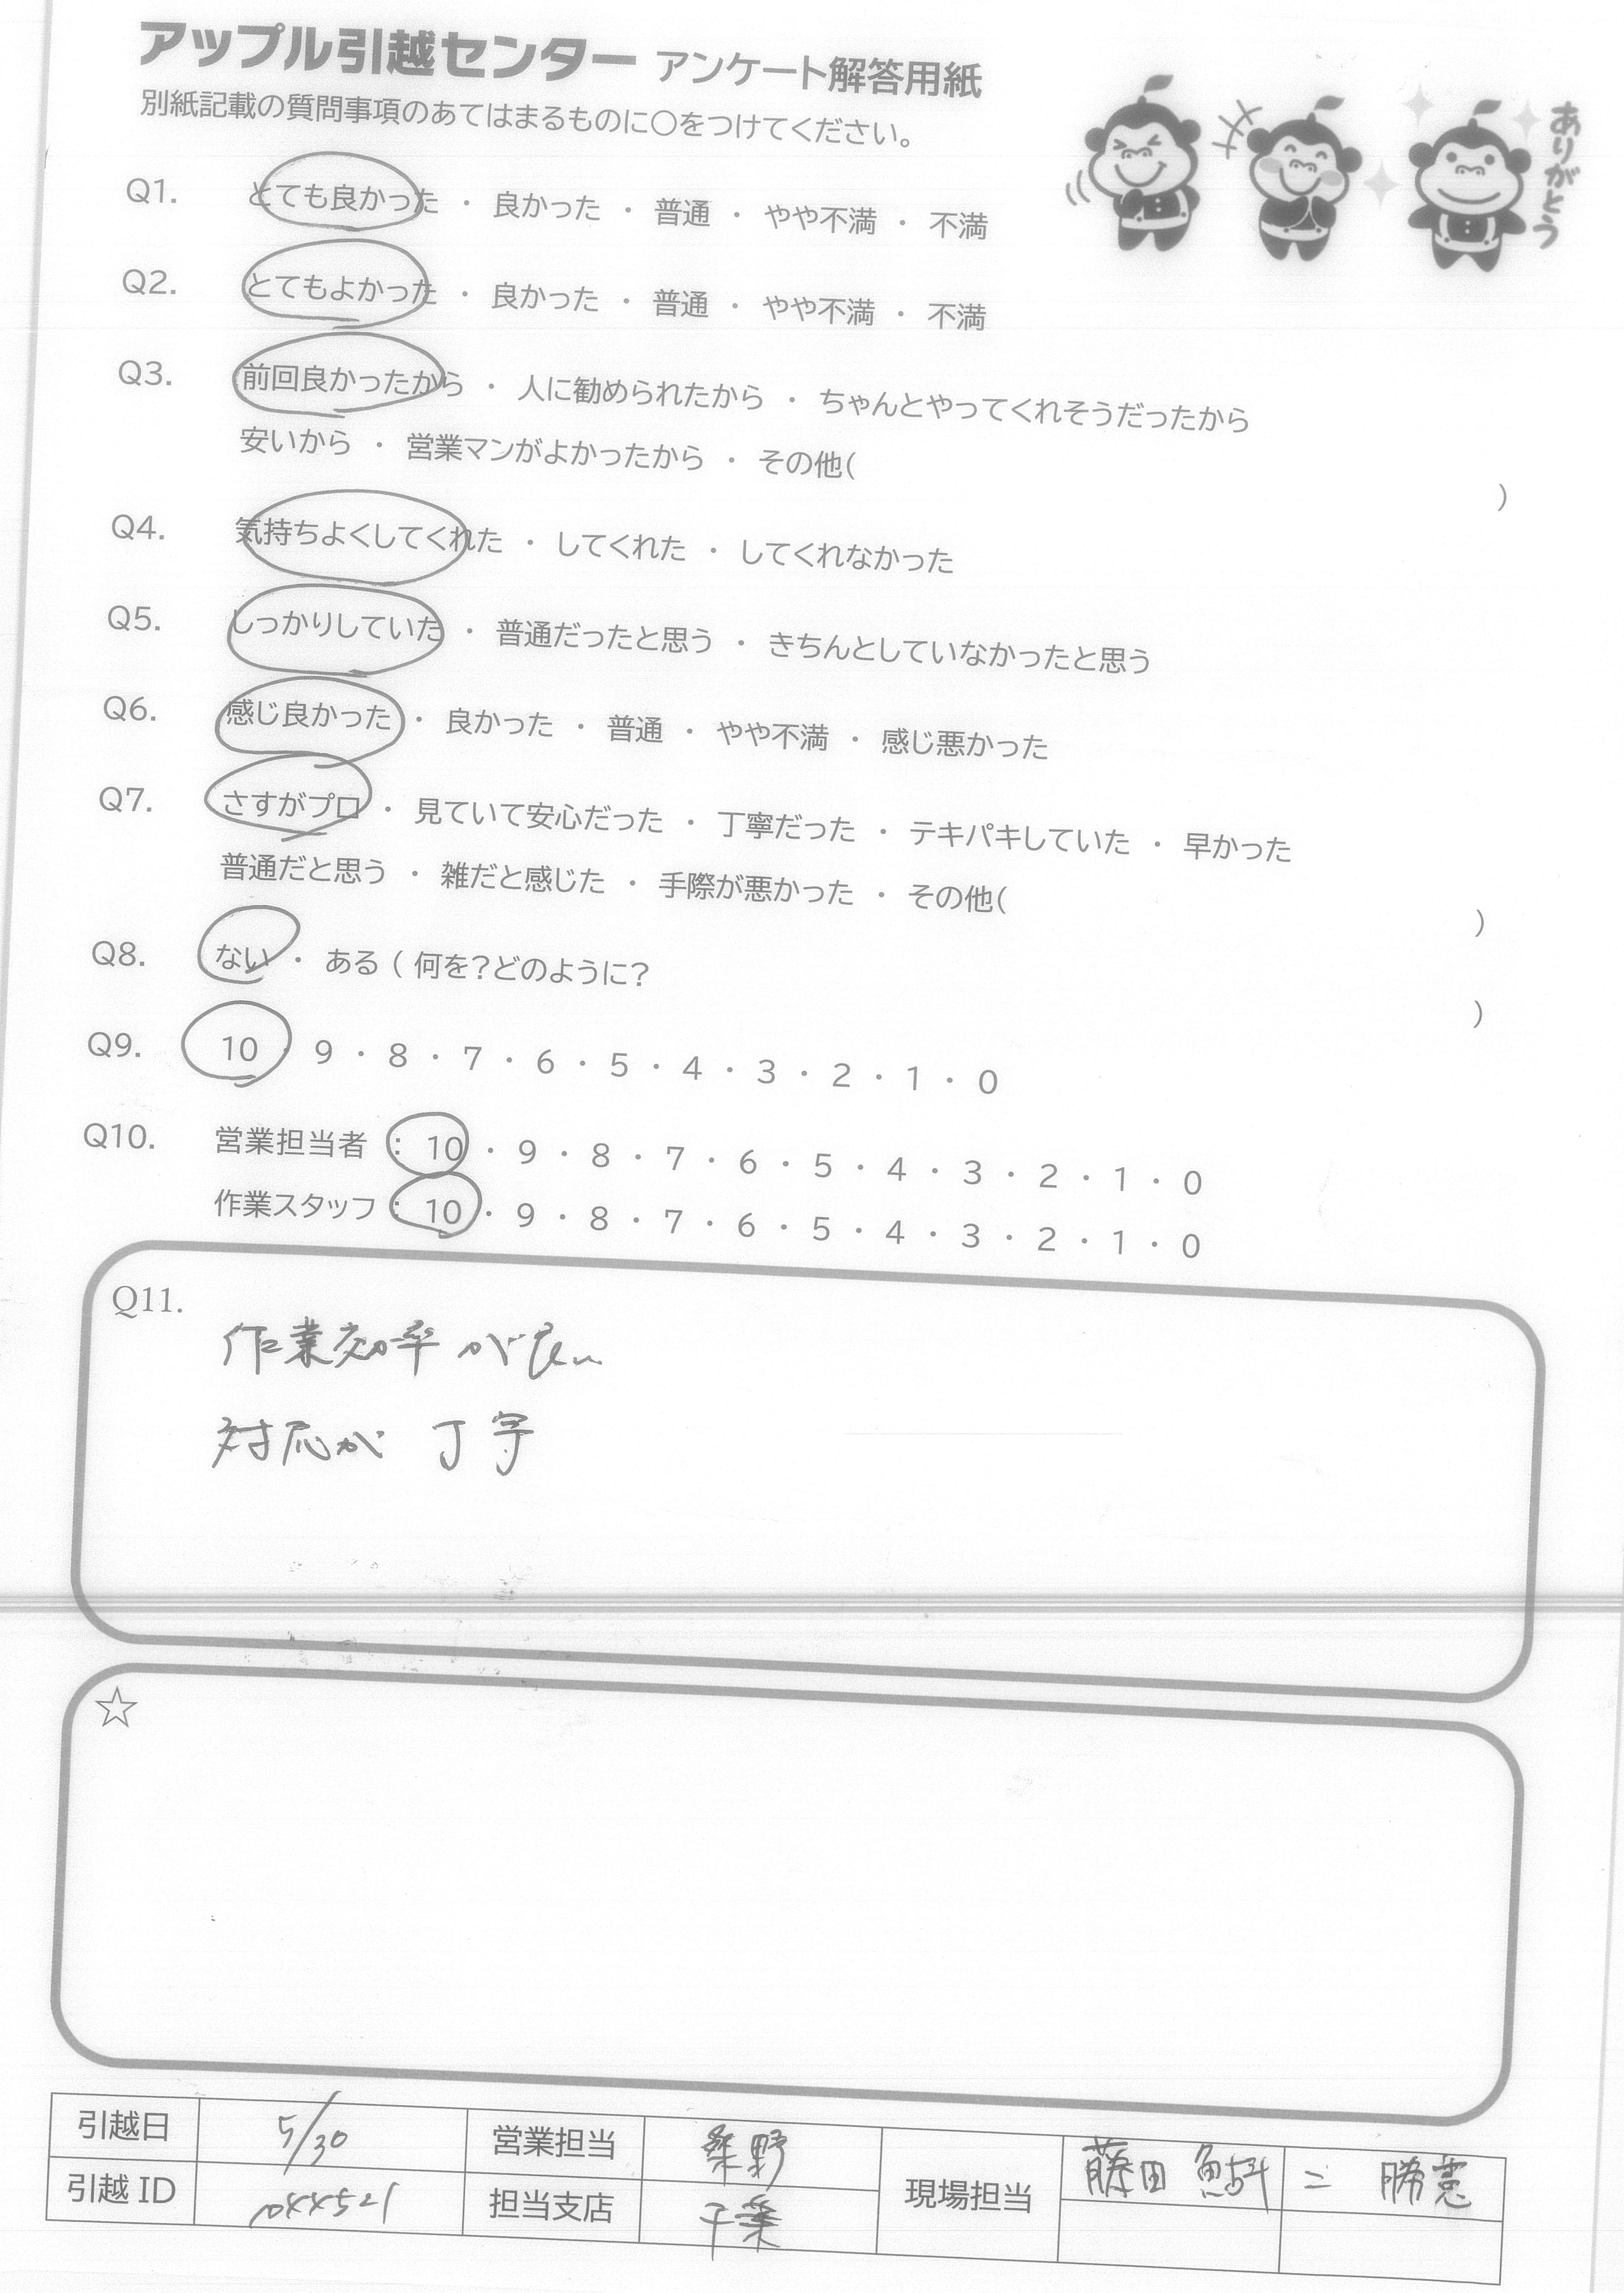 アップル引越センター アンケート解答用紙
別紙記載の質問事項のあてはまるものに〇をつけてください。
ありがとう
Q1. とても良かった ・ 良かった ・ 普通 ・ やや不満 ・ 不満
Q2. とてもよかった ・ 良かった ・ 普通 ・ やや不満 ・ 不満
Q3. 前回良かったから ・ 人に勧められたから ・ ちゃんとやってくれそうだったから
安いから ・ 営業マンがよかったから ・ その他( )
Q4. 気持ちよくしてくれた ・ してくれた ・ してくれなかった
Q5. しっかりしていた ・ 普通だったと思う ・ きちんとしていなかったと思う
Q6. 感じ良かった ・ 良かった ・ 普通 ・ やや不満 ・ 感じ悪かった
Q7. さすがプロ ・ 見ていて安心だった ・ 丁寧だった ・ テキパキしていた ・ 早かった
普通だと思う ・ 雑だと感じた ・ 手際が悪かった ・ その他( )
Q8. ない ・ ある ( 何を?どのように? )
Q9. 10 ・ 9 ・ 8 ・ 7 ・ 6 ・ 5 ・ 4 ・ 3 ・ 2 ・ 1 ・ 0
Q10. 営業担当者 : 10 ・ 9 ・ 8 ・ 7 ・ 6 ・ 5 ・ 4 ・ 3 ・ 2 ・ 1 ・ 0
作業スタッフ : 10 ・ 9 ・ 8 ・ 7 ・ 6 ・ 5 ・ 4 ・ 3 ・ 2 ・ 1 ・ 0
Q11.
作業効率が良い
対応が 丁寧
☆
引越日 5/30 営業担当 桑野 現場担当 藤田 二 勝憲
引越 ID 担当支店 千葉